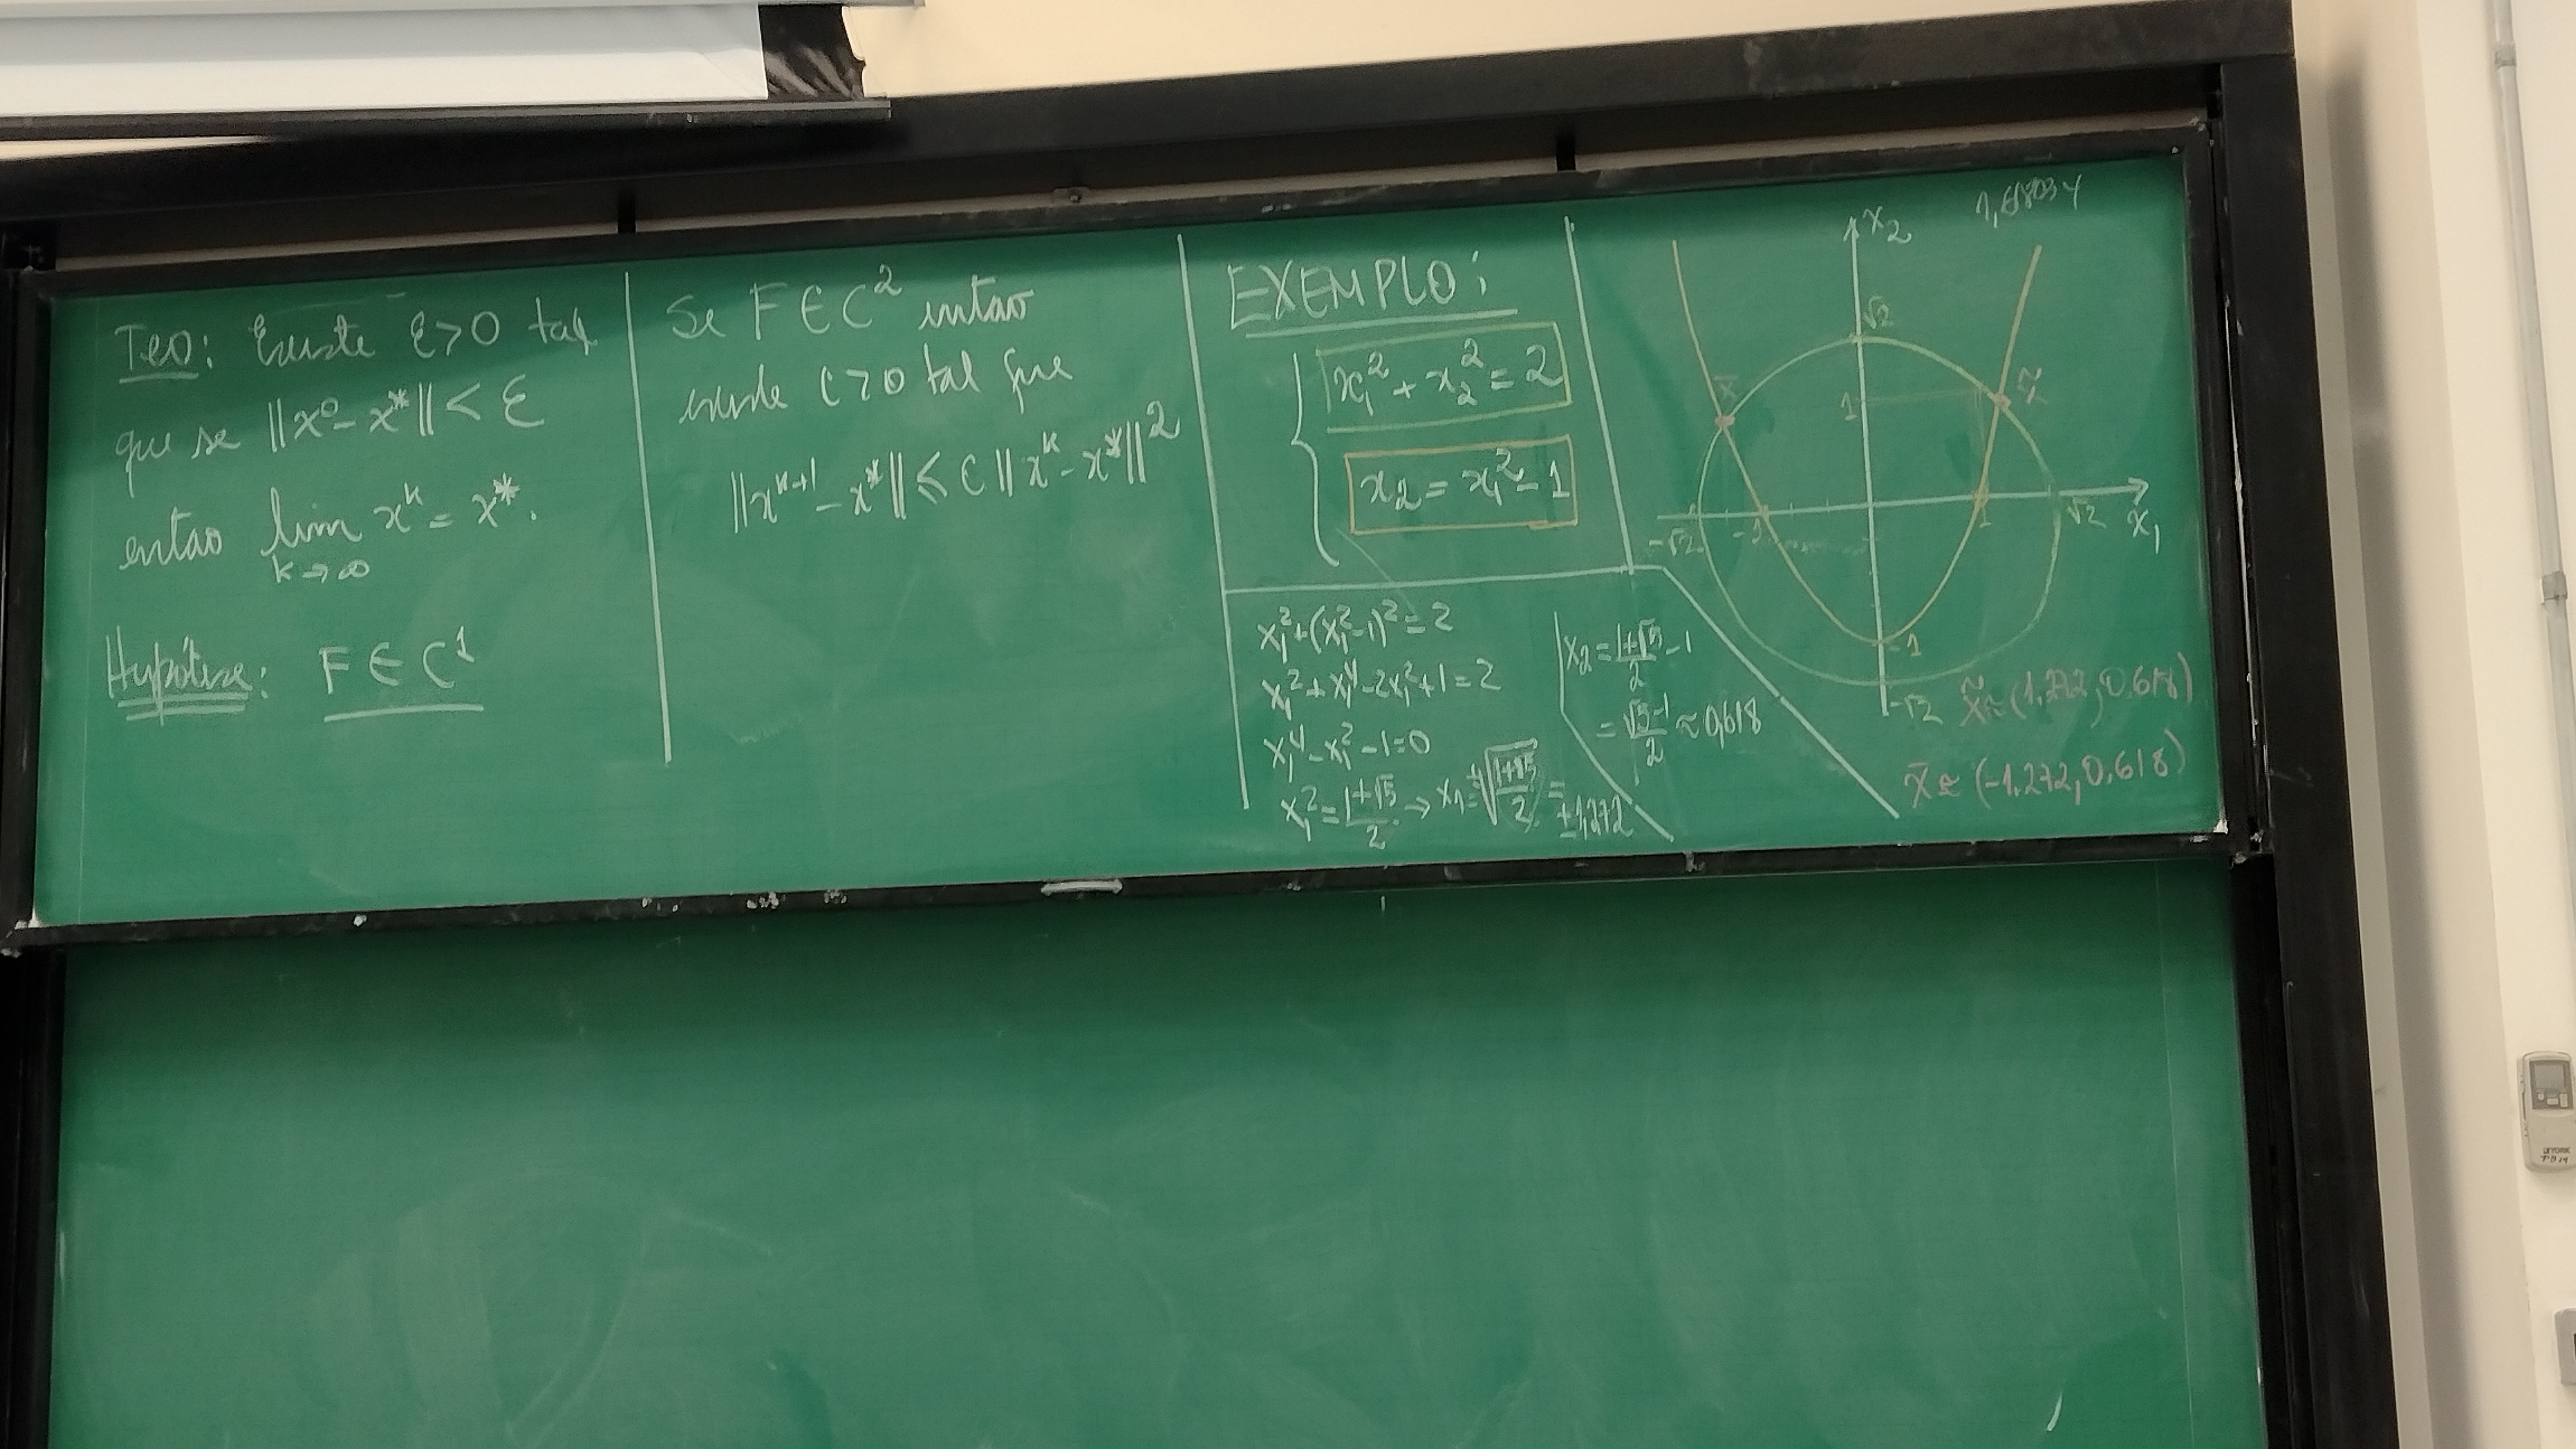 Teo: Existe ε>0 tal
que se ||x⁰ - x*|| < ε
então lim x^k = x*.
k→∞
Hipótese: F ∈ C¹
Se F ∈ C² então
existe c>0 tal que
||x^{k+1} - x*|| ≤ c ||x^k - x*||²
EXEMPLO:
x₁² + x₂² = 2
x₂ = x₁² - 1
x₁² + (x₁² - 1)² = 2
x₁² + x₁⁴ - 2x₁² + 1 = 2
x₁⁴ - x₁² - 1 = 0
x₁² = (1+√5)/2 → x₁ = ±√((1+√5)/2) =
±1,272
x₂ = (1+√5)/2 - 1
= (√5-1)/2 ≈ 0,618
x₂
√2
x̄
1
x̃
-√2
-1
1
√2
x₁
-1
-√2
x̃ ≈ (1,272, 0,618)
x̄ ≈ (-1,272, 0,618)